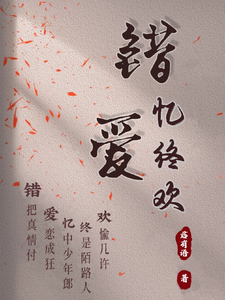 错爱
忆终欢
错
把真情付
爱
恋成狂
忆
中少年郎
终
是陌路人
欢
愉几许
著